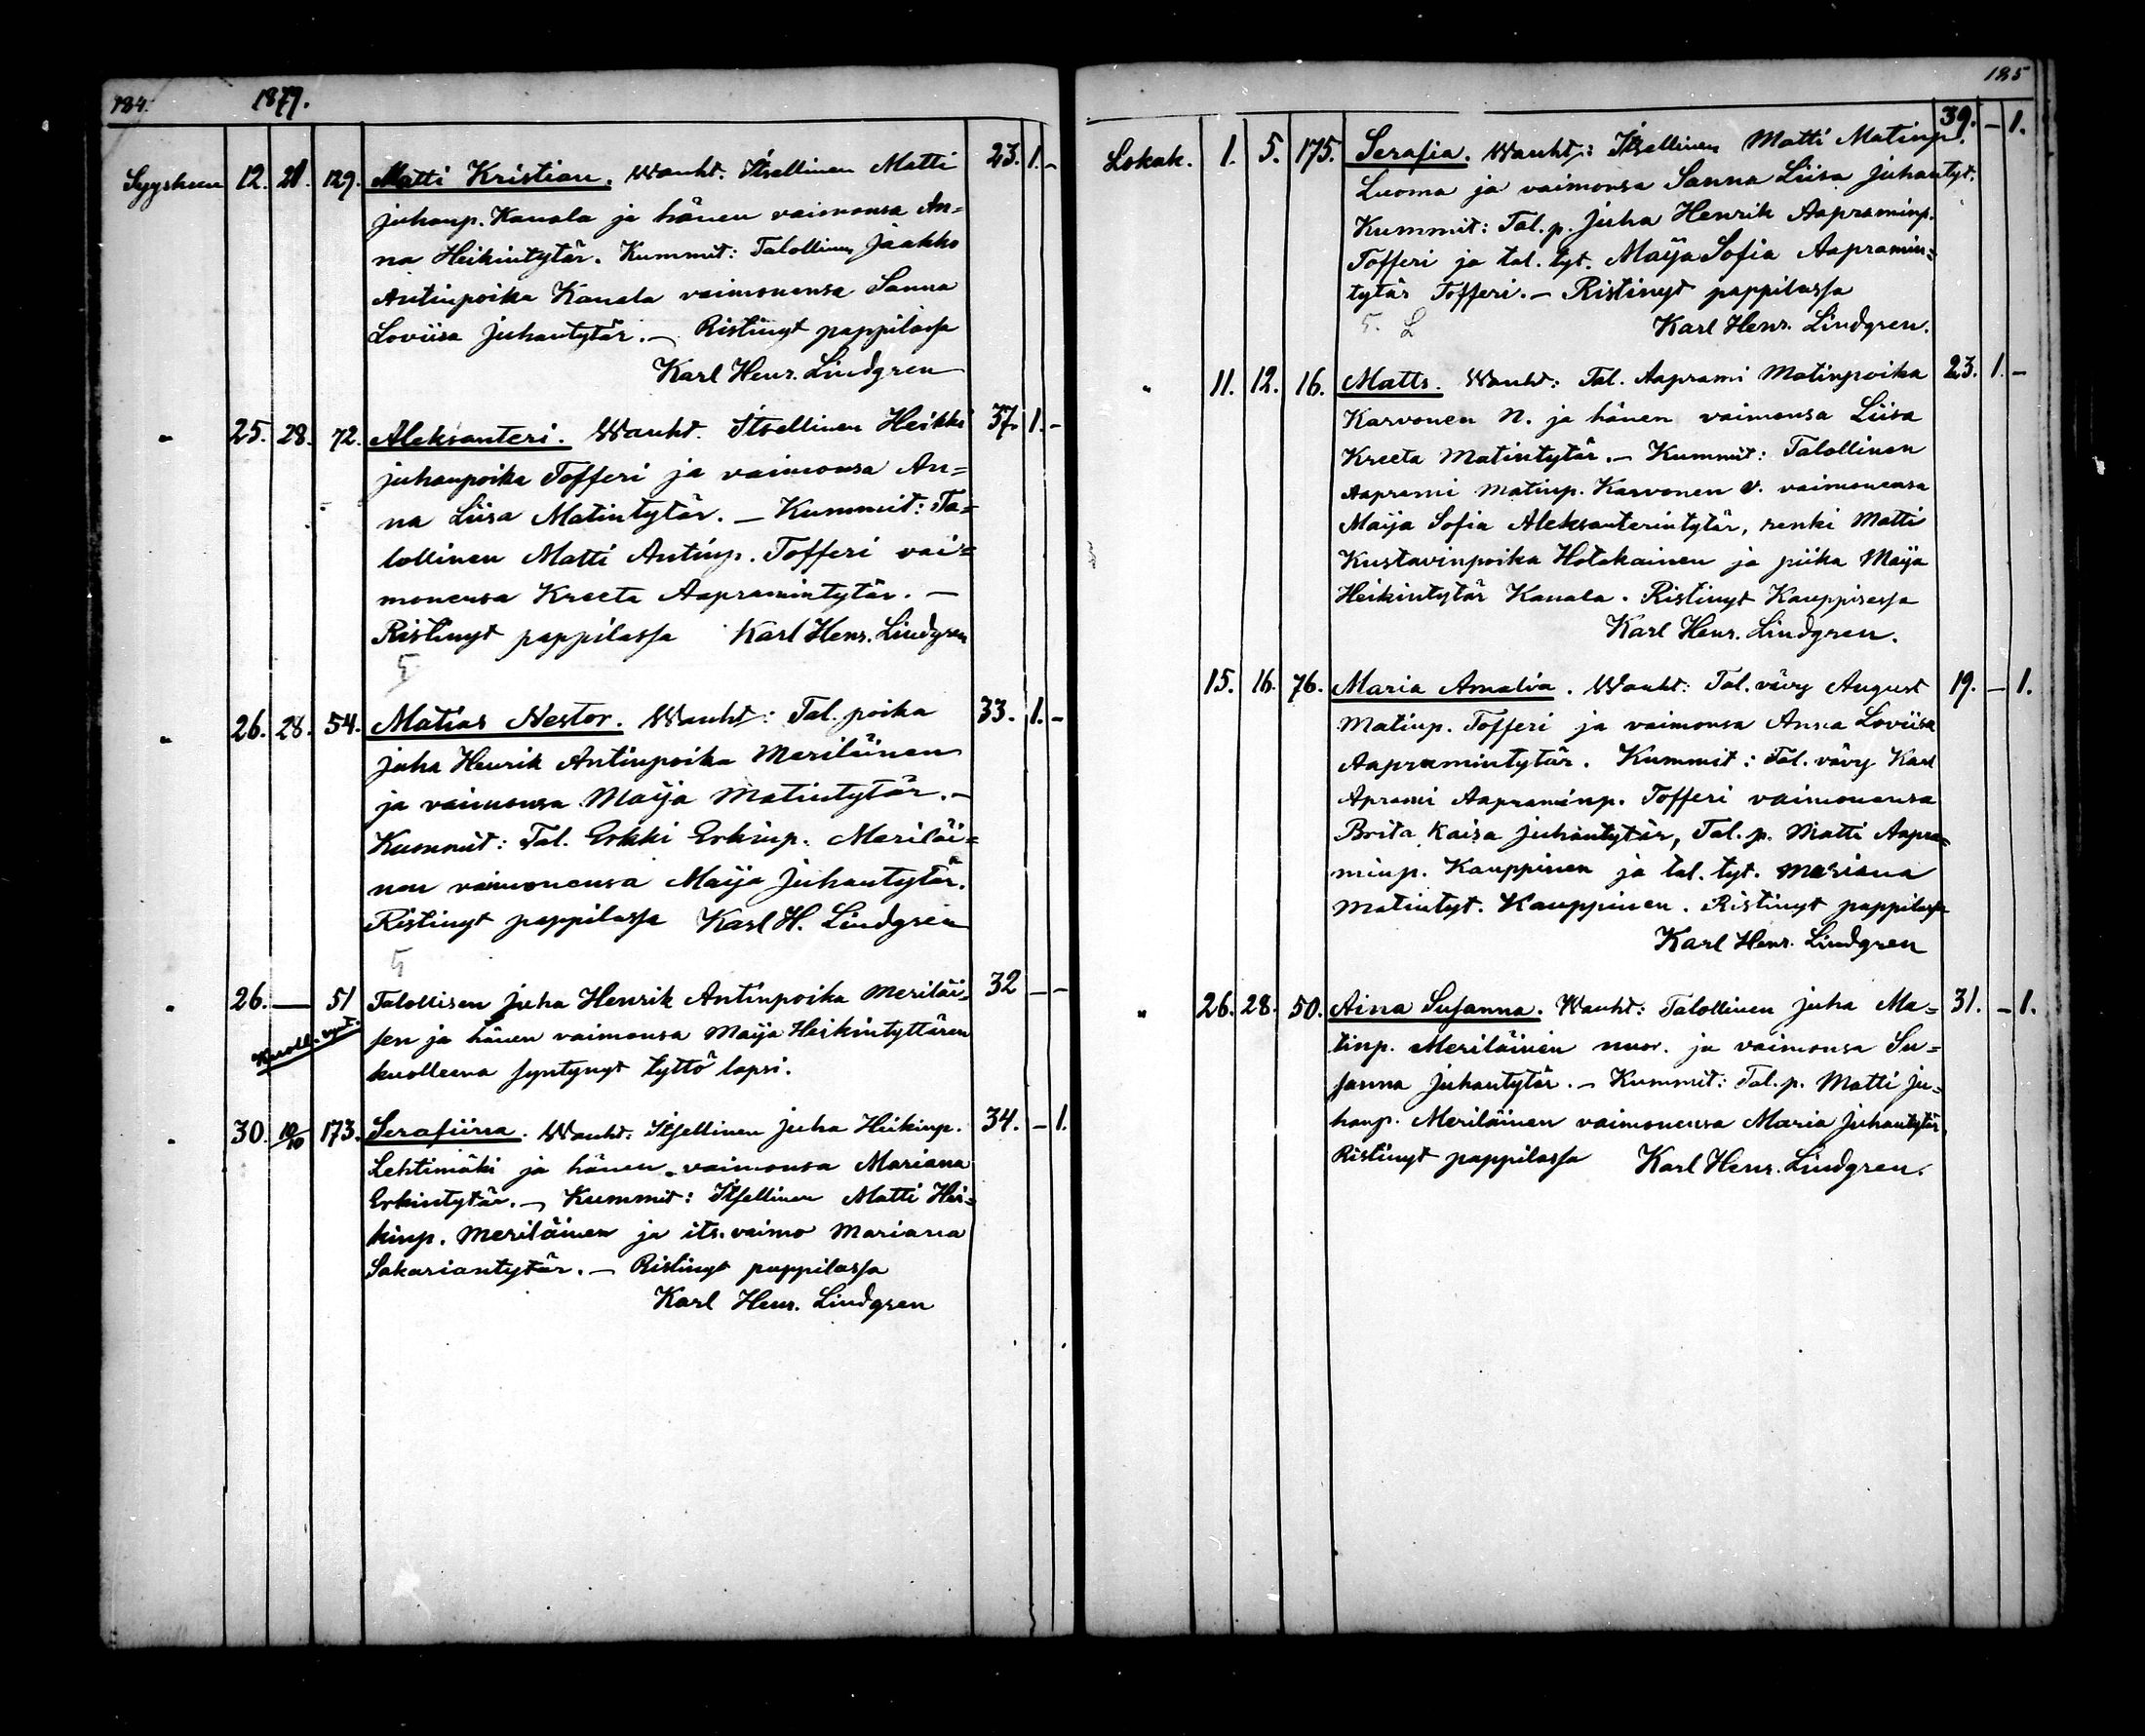 184. 1877.
Syyskuun 12. 21. 129. Matti Kristian. Wanht. Itsellinen Matti 23. 1. -
Juhanp. Kanala ja hänen vaimonsa An=
na Heikintytär. Kummit: Talollinen Jaakko
Antinpoika Kanala vaimonensa Sanna
Loviisa Juhantytär. — Ristinyt pappilassa
Karl Henr. Lindgren
" 25. 28. 72. Aleksanteri. Wanht. Itsellinen Heikki 37. 1. -
Juhanpoika Tofferi ja vaimonsa An=
na Liisa Matintytär. — Kummit: Ta=
lollinen Matti Antinp. Tofferi vai=
monensa Kreeta Aapramintytär. —
Ristinyt pappilassa Karl Henr. Lindgren
" 26. 28. 54. Matias Nestor. Wanht: Tal. poika 33. 1. -
Juha Henrik Antinpoika Meriläinen
ja vaimonsa Maija Matintytär. —
Kummit: Tal. Erkki Erkinp. Meriläi=
nen vaimonensa Maija Juhantytär.
Ristinyt pappilassa Karl H. Lindgren
" 26. — 51 Talollisen Juha Henrik Antinpoika Meriläi= 32 - -
Kuoll. synt. sen ja hänen vaimonsa Maija Heikintyttären
kuolleena syntynyt tyttö lapsi.
" 30. 10/10 173. Serafiina. Wanht: Itsellinen Juha Heikinp. 34. - 1.
Lehtimäki ja hänen vaimonsa Mariana
Erkintytär. — Kummit: Itsellinen Matti Hei=
kinp. Meriläinen ja its. vaimo Mariana
Sakariantytär. — Ristinyt pappilassa
Karl Henr. Lindgren
185
Lokak. 1. 5. 175. Serafia. Wanht: Itsellinen Matti Matinp. 39. - 1.
Luoma ja vaimonsa Sanna Liisa Juhantyt.
Kummit: Tal. p. Juha Henrik Aapraminp.
Tofferi ja tal. tyt. Maija Sofia Aapramin=
tytär Tofferi. — Ristinyt pappilassa
Karl Henr. Lindgren.
" 11. 12. 16. Matts. Wanht: Tal. Aaprami Matinpoika 23. 1. -
Karvonen N. ja hänen vaimonsa Liisa
Kreeta Matintytär. — Kummit: Talollinen
Aaprami Matinp. Karvonen v. vaimonensa
Maija Sofia Aleksanterintytär, renki Matti
Kustavinpoika Hotakainen ja piika Maija
Heikintytär Kanala. Ristinyt Kauppisessa
Karl Henr. Lindgren.
15. 16. 76. Maria Amalia. Wanht: Tal. vävy August 19. - 1.
Matinp. Tofferi ja vaimonsa Anna Loviisa
Aapramintytär. Kummit: Tal. vävy Karl
Aprami Aapraminp. Tofferi vaimonensa
Brita Kaisa Juhantytär, Tal. p. Matti Aapra=
minp. Kauppinen ja tal. tyt. Mariana
Matintyt. Kauppinen. Ristinyt pappilassa
Karl Henr. Lindgren
" 26. 28. 50. Aina Susanna. Wanht: Talollinen Juha Ma= 31. - 1.
tinp. Meriläinen nuor. ja vaimonsa Su=
sanna Juhantytär. — Kummit: Tal. p. Matti Ju=
hanp. Meriläinen vaimonensa Maria Juhantytär.
Ristinyt pappilassa Karl Henr. Lindgren.